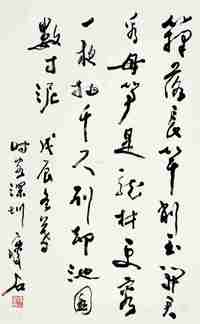 籜落長竿削玉開君
看母笋是龍材更容
一夜抽千尺别却池園
數寸泥
戊辰冬
深圳